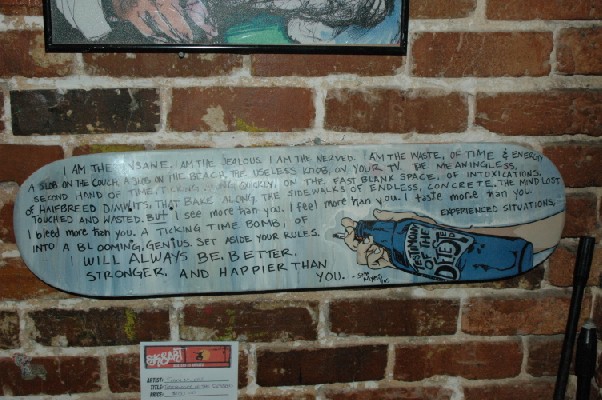 I AM THE INSANE. I AM THE JEALOUS. I AM THE NERVED. I AM THE WASTE, OF TIME & ENERGY
A SLOB ON THE COUCH. A SHOE ON THE BEACH, THE USELESS KNOB, ON YOUR TV. DE MEANINGLESS,
SECOND HAND OF TIME, TICKING QUICKLY, ON THE FAST BLANK SPACE, OF INTOXICATIONS.
OF HALFBREED DIMWITS, THAT BAKE ALONG THE SIDEWALKS OF ENDLESS, CONCRETE. THE MIND LOST
TOUCHED AND WASTED. BUT I see more than you. I feel more than you. I taste more than you.
I bleed more than you. A TICKING TIME BOMB, OF EXPERIENCED SITUATIONS,
INTO A BLOOMING, GENIUS. SET ASIDE YOUR RULES.
I WILL ALWAYS BE. BETTER.
STRONGER. AND HAPPIER THAN
YOU.
TESTAMONY
OF THE
ARTIST:
TITLE: